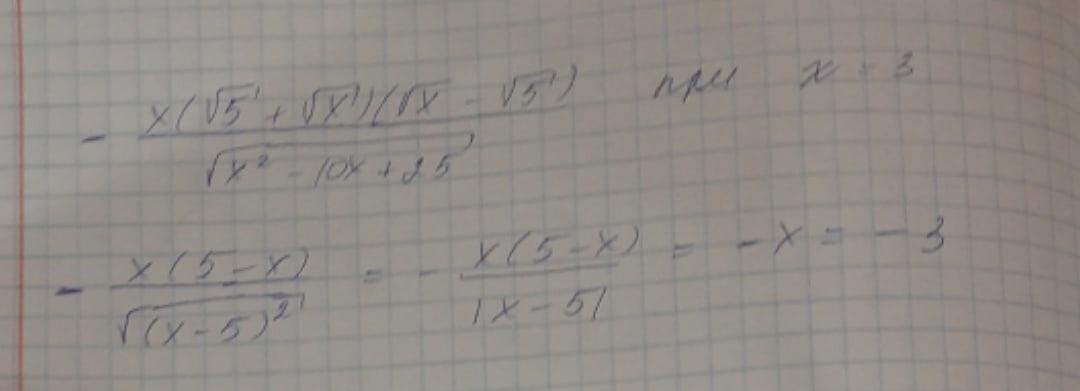 - x(√5 + √x)(√x - √5) / √x² - 10x + 25 при x = 3
- x(5 - x) / √(x - 5)² = - x(5 - x) / |x - 5| = - x = - 3